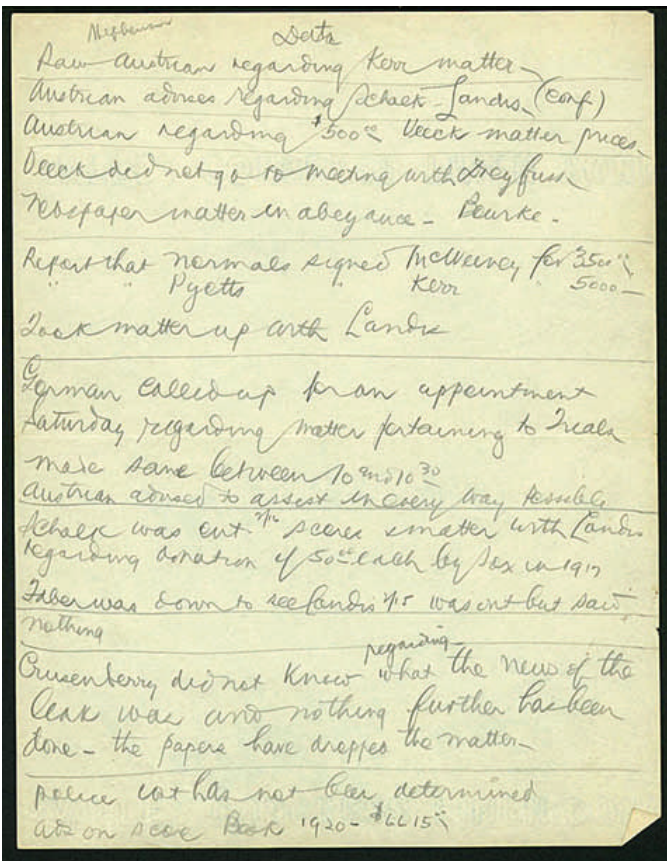 Data
Saw Austrian regarding Kerr matter -
Austrian advises regarding Schalk - Landis (conf)
Austrian regarding $500 00 Veeck matter prices
Veeck did not go to meeting with Dreyfuss
Newspaper matter in abeyance - Bourke -
Report that Normals signed McWeeney for 3500 00
" " Pyotts " Kerr " 5000 -
Took matter up with Landis
Gorman called up for an appointment
Saturday regarding matter pertaining to Trials
made same between 10 and 10 30
Austrian advised to assist in every way possible
Schalk was out 2/16 matter with Landis
regarding donation of 50 00 each by Sox in 1917
Faber was down to see Landis 2/15 was out but said
nothing
regarding
Crusenberry did not know what the news of the
leak was and nothing further has been
done - the papers have dropped the matter -
police has not been determined
ads on score Book 1920 - $6615